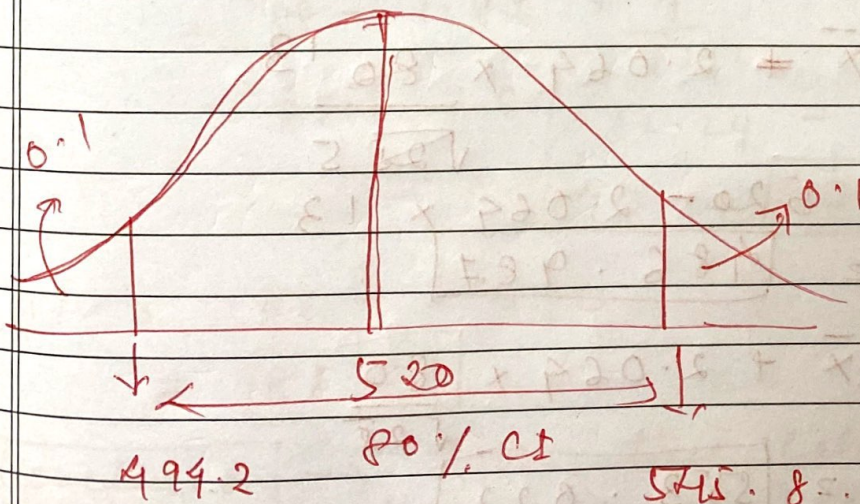 0.1
0.1
520
80% CI
494.2
545.8